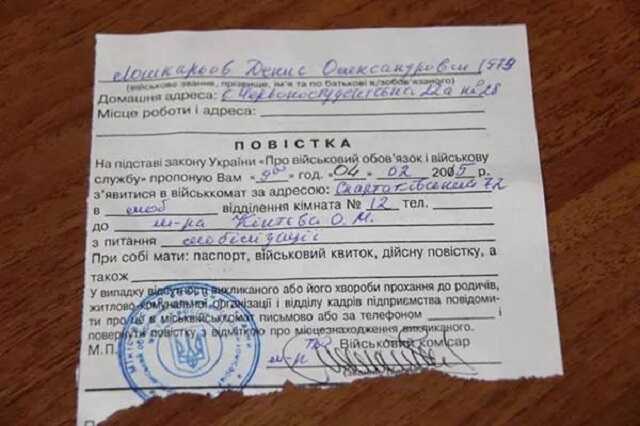 Денис Олександрович 1979
(військове звання, прізвище, ім'я та по батькові в/зобов'язаного)
Домашня адреса: с. Червоностудентська 22а кв 28
Місце роботи і адреса:
ПОВІСТКА
На підставі закону України «Про військовий обов'язок і військову
службу» пропоную Вам «9⁰⁰» год. «04» 02 2015 р.
з'явитися в військкомат за адресою: 72
в моб відділення кімната № 12 тел.
до м-ра О. М.
з питання мобілізації
При собі мати: паспорт, військовий квиток, дійсну повістку, а
також
У випадку відсутності викликаного або його хвороби прохання до родичів,
житлово-комунальної організації і відділу кадрів підприємства повідоми-
ти про це в міськвійськкомат письмово або за телефоном і
повернути повістку з відміткою про місцезнаходження викликаного.
М.П. Військовий комісар
м-р